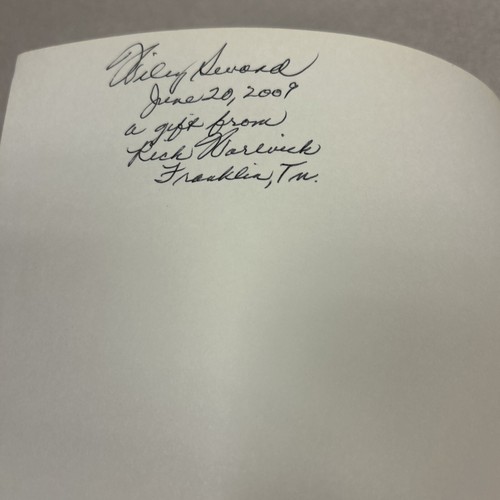 Wiley Sword
June 20, 2009
a gift from
Rick Warwick
Franklin, Tn.